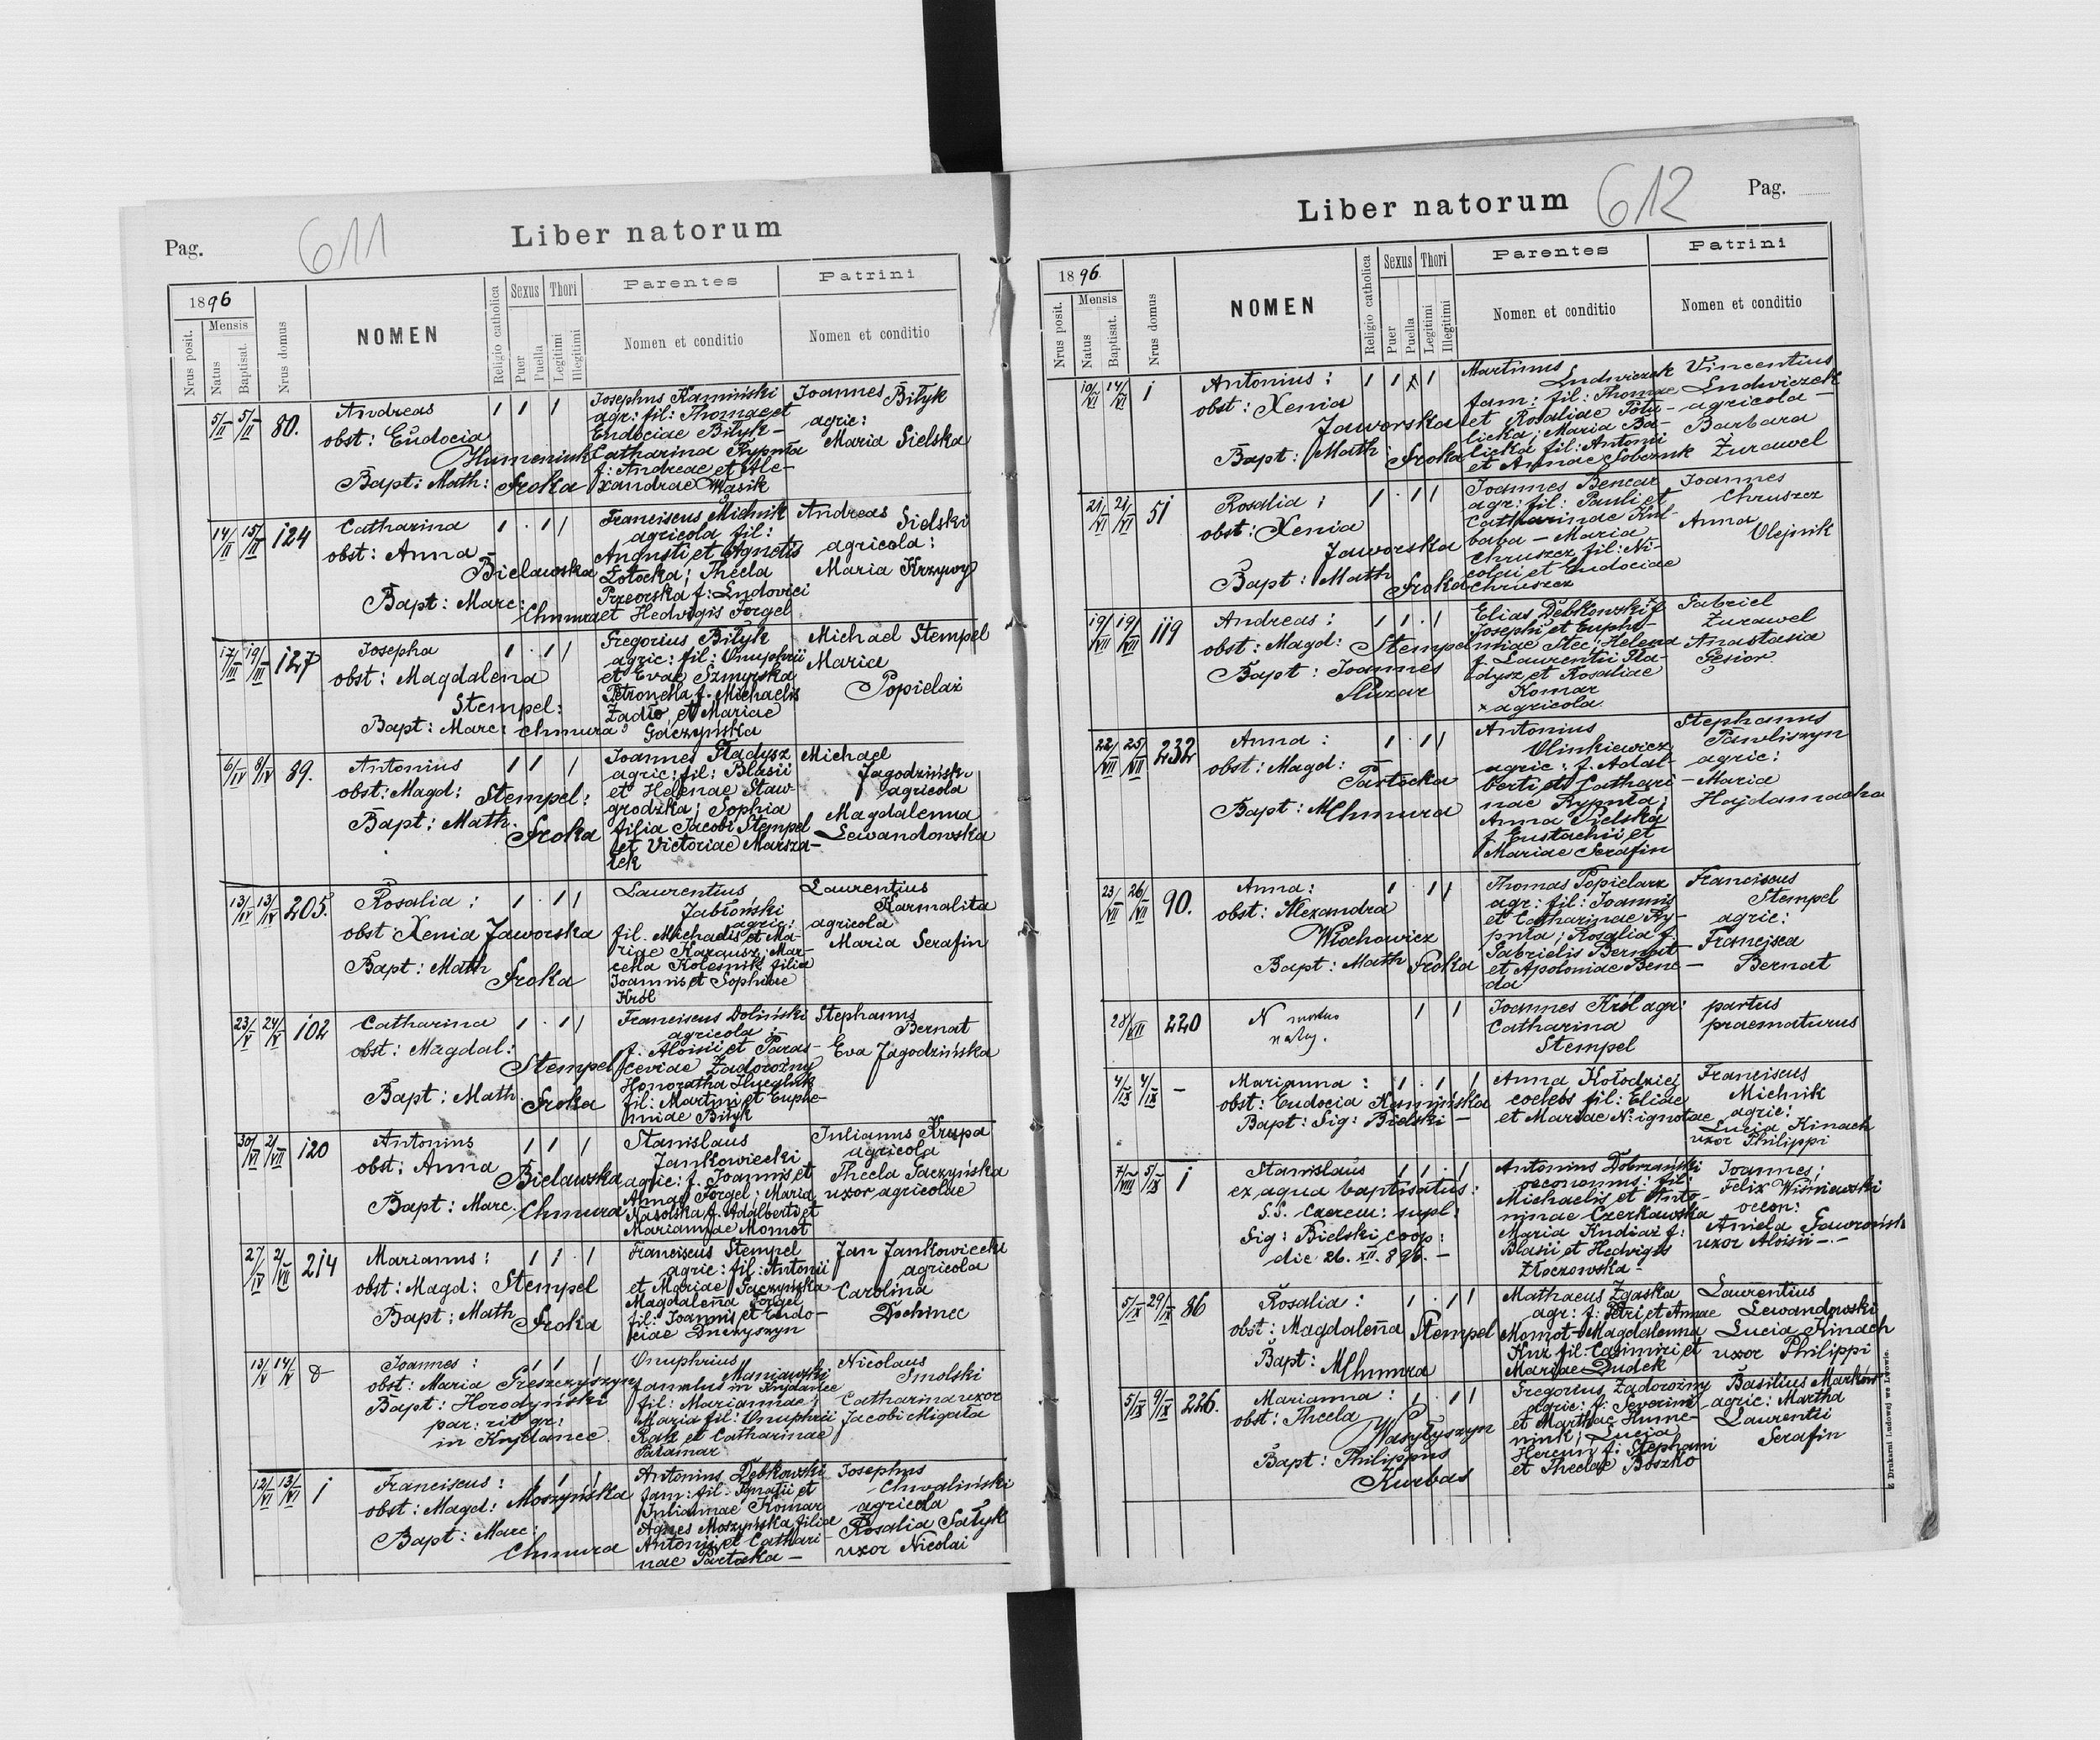 Pag.
611
Liber natorum
1896
Nrus posit.
Mensis
Natus
Baptisat.
Nrus domus
NOMEN
Religio catholica
Sexus
Puer
Puella
Thori
Legitimi
Illegitimi
Parentes
Nomen et conditio
Patrini
Nomen et conditio
5/II 5/II 80.
Andreas
obst: Eudocia
Humeniuk
Bapt: Math: Sroka
Josephus Kamiński
agr: fil: Thomae et
Eudociae Bityk –
Catharina Rypnta
f: Andreae et Ale-
xandrae Wasik
Joannes Bityk
agric:
Maria Sielska
14/II 15/II 124
Catharina
obst: Anna
Bielawska
Bapt: Marc:
Chmura
Franciscus Michnik
agricola fil:
Augusti et Agnetis
Łotocka; Thecla
Przeorska f: Ludovici
et Hedvigis Forgel
Andreas
Sielski
agricola:
Maria Krzywy
17/III 19/III 127
Josepha
obst: Magdalena
Stempel:
Bapt: Marc: Chmura
Gregorius Bityk
agric: fil: Onuphrii
et Evae Szmyrska
Petronella f. Michaelis
Zadło et Mariae
Gaczyńska
Michael Stempel
Maria
Popielaż
6/IV 8/IV 89.
Antonius
obst: Magd: Stempel:
Bapt: Math. Sroka
Joannes Gładysz
agric: fil: Blasii
et Helenae Staw-
grodzka; Sophia
filia Jacobi Stempel
et Victoriae Marsza-
łek
Michael
Jagodziński
agricola
Magdalenna
Lewandowska
13/IV 13/IV 205.
Rosalia:
obst Xenia Jaworska
Bapt: Math
Sroka
Laurentius
Jabłoński
agric:
fil. Michaelis et Ma-
riae Karausz; Mar-
cella Kolesnik filia
Joannis et Sophiae
Król
Laurentius
Karmalita
agricola
Maria Serafin
23/V 24/V 102
Catharina
obst: Magdal:
Stempel
Bapt: Math. Sroka
Franciscus Doliński
agricola
f. Aloisii et Paras-
ceviae Zadorożny
Honoratha Hucyluk
fil: Martini et Euphe-
miae Bityk
Stephanus
Bernat
Eva Jagodzińska
30/VI 2/VII 120
Antonius
obst: Anna
Bielawska
Bapt: Marc. Chmura
Stanislaus
Jankowiecki
agric: f. Joannis et
Annae Forgel; Maria
Nasolska f. Adalberti et
Mariannae Momot
Julianus Krupa
agricola
Thecla Gaczyńska
uxor agricolae
27/IV 2/VII 214
Marianus:
obst: Magd: Stempel
Bapt: Math Sroka
Franciscus Stempel
agric: fil: Antonii
et Mariae Gaczyńska
Magdalena Forgel
fil: Joannis et Eudo-
ciae Dmeryszyn
Jan Jankowiecki
agricola
Carolina
Dochinec
13/V 14/V 8
Joannes:
obst: Maria Greszczyszyn
Bapt: Horodyński
par: rit gr:
in Knjdanec
Onuphrius
Maniawski
famulus in Knjdaniec
fil: Mariannae;
Maria fil: Onuphrii
Rak et Catharinae
Patamar
Nicolaus
Smolski
Catharina uxor
Jacobi Migała
12/VI 13/VI 1
Franciscus:
obst: Magd: Moszyńska
Bapt: Marc:
Chmura
Antonius Dębkowski
fam: fil: Ignatii et
Julianae Komar
Agnes Moszyńska filia
Antonii et Cathari-
nae Partacka –
Josephus
Chwaliński
agricola
Rosalia Sałyk
uxor Nicolai
Liber natorum
612
Pag.
1896.
Nrus posit.
Mensis
Natus
Baptisat.
Nrus domus
NOMEN
Religio catholica
Sexus
Puer
Puella
Thori
Legitimi
Illegitimi
Parentes
Nomen et conditio
Patrini
Nomen et conditio
10/VI 14/VI 1
Antonius:
obst: Xenia
Jaworska
Bapt: Math: Sroka
Martinus
Ludwiczek
fam: fil: Thomae
et Rosaliae Potu-
licka; Maria Ba-
licka fil: Antonii
et Annae Sobczuk
Vincentius
Ludwiczek
agricola –
Barbara
Żurawel
21/VI 21/VI 51
Rosalia:
obst: Xenia
Jaworska
Bapt: Math
Sroka
Joannes Bencar
agr: fil: Pauli et
Catharinae Kul-
baba – Maria
Chruszcz fil: Ni-
colai et Eudociae
Chruszcz
Joannes
Chruszcz
Anna
Olejnik
19/VII 19/VII 119
Andreas:
obst: Magd: Stempel
Bapt: Joannes
Sluzar
Elias Dębkowski x f.
Josephi et Euphe-
miae Stec; Helena
f. Laurentii Gła-
dysz et Rosaliae
Komar
x agricola.
Gabriel
Żurawel
Anastasia
Gesior
22/VII 25/VII 232
Anna:
obst: Magd:
Partacka
Bapt: MChmura
Antonius
Olinkiewicz
agric: f. Adal-
berti et Cathari-
nae Rypnta;
Anna Sielska
f. Eustachii et
Mariae Serafin
Stephanus
Pawliszyn
agric:
Maria
Hajdamacha
23/VII 26/VII 90.
Anna:
obst: Alexandra
Włochowicz
Bapt: Math Sroka
Thomas Popielarz
agr: fil: Joannis
et Catharinae Ry-
pnta; Rosalia f.
Gabrielis Bernat
et Apoloniae Bene-
da
Franciscus
Stempel
agric:
Francisca
Bernat
28/VII 220
N mortus
natus.
Joannes Król agr:
Catharina
Stempel
partus
praematurus
4/IX 4/IX –
Marianna:
obst: Eudocia Kamińska
Bapt: Sig: Bielski –
Anna Kołodziej
coelebs fil: Eliae
et Mariae N: ignotae
Franciscus
Michnik
agric:
Lucia Kinach
uxor Philippi
7/VIII 5/IX 1
Stanislaus
ex aqua baptisatus:
S.S. Caerem: supl:
Sig: Bielski coop:
die 26. XII. 896. –
Antonius Dobrzański
oeconomus: fil:
Michaelis et Anto-
ninae Czerkawska
Maria Kudiar f:
Blasii et Hedvigis
Złoczowska –
Joannes;
Felix Wiśniewski
oecon:
Aniela Gawrońsk
uxor Aloisii –.–
5/IX 29/IX 86
Rosalia:
obst: Magdalena Stempel
Bapt: MChmura
Mathaeus Zgaska
agr: f: Petri et Annae
Momot – Magdalenna
Kuz fil: Casimiri et
Mariae Dudek
Laurentius
Lewandowski
Lucia Kinach
uxor Philippi
5/IX 9/IX 226.
Marianna:
obst: Thecla
Wasyłyszyn
Bapt: Philippus
Kurbas
Gregorius Zadorożny
agric: f: Severini
et Marthae Hume-
niuk; Lucia
Hercun f: Stephani
et Theclae Boszko
Basilius Marków
agric: Martha
Laurentii
Serafin
Z Drukarni Ludowej we Lwowie.